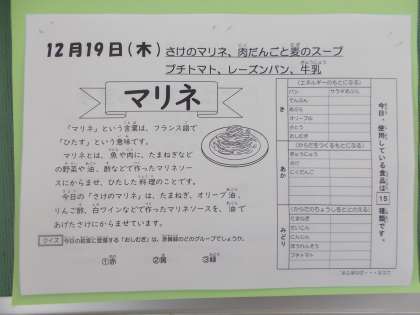 12月19日(木) さけのマリネ、肉だんごと麦のスープ
プチトマト、レーズンパン、牛乳
マリネ
「マリネ」という言葉は、フランス語で
「ひたす」という意味です。
マリネとは、魚や肉に、たまねぎなど
の野菜や油、酢などで作ったマリネソー
スにからませ、ひたした料理のことです。
今日の「さけのマリネ」は、たまねぎ、オリーブ油、
りんご酢、白ワインなどで作ったマリネソースを、油で
あげたさけにからませています。
クイズ 今日の給食に登場する「おしむぎ」は、赤黄緑のどのグループでしょうか。
①赤 ②黄 ③緑
今日、使用している食品は
15
種類です。
き
(エネルギーのもとになる)
パン サラダあぶら
でんぷん
あぶら
オリーブ油
さとう
おしむぎ
あか
(からだをつくるもとになる)
ぎゅうにゅう
さけ
にくだんご
みどり
(からだのちょうしをととのえる)
たまねぎ
だいこん
にんじん
ほうれんそう
プチトマト